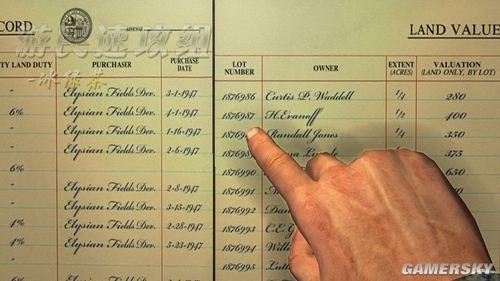 游民速攻组
CORD
TY LAND DUTY PURCHASER PURCHASE DATE
" Elysian Fields Dev. 3-1-1947
6% Elysian Fields Dev. 4-1-1947
" Elysian Fields Dev. 1-16-1947
" Elysian Fields Dev. 2-6-1947
6%
" Elysian Fields Dev. 2-8-1947
" Elysian Fields Dev. 3-15-1947
4% Elysian Fields Dev. 2-28-1947
4% Elysian Fields Dev. 5-23-1947
6% Elysian Fields Dev.
LAND VALUE
LOT NUMBER OWNER EXTENT (ACRES) VALUATION (LAND ONLY, BY LOT)
1876986 Curtis P. Waddell 1/4 280
1876987 H. Evanoff 1/2 400
187698 Randall Jones 1/4 350
187698 375
1876990 650
1876991
1876992 Dan
1876993 C.E. G
1876994 Will
1876995 Luth
GAMERSKY